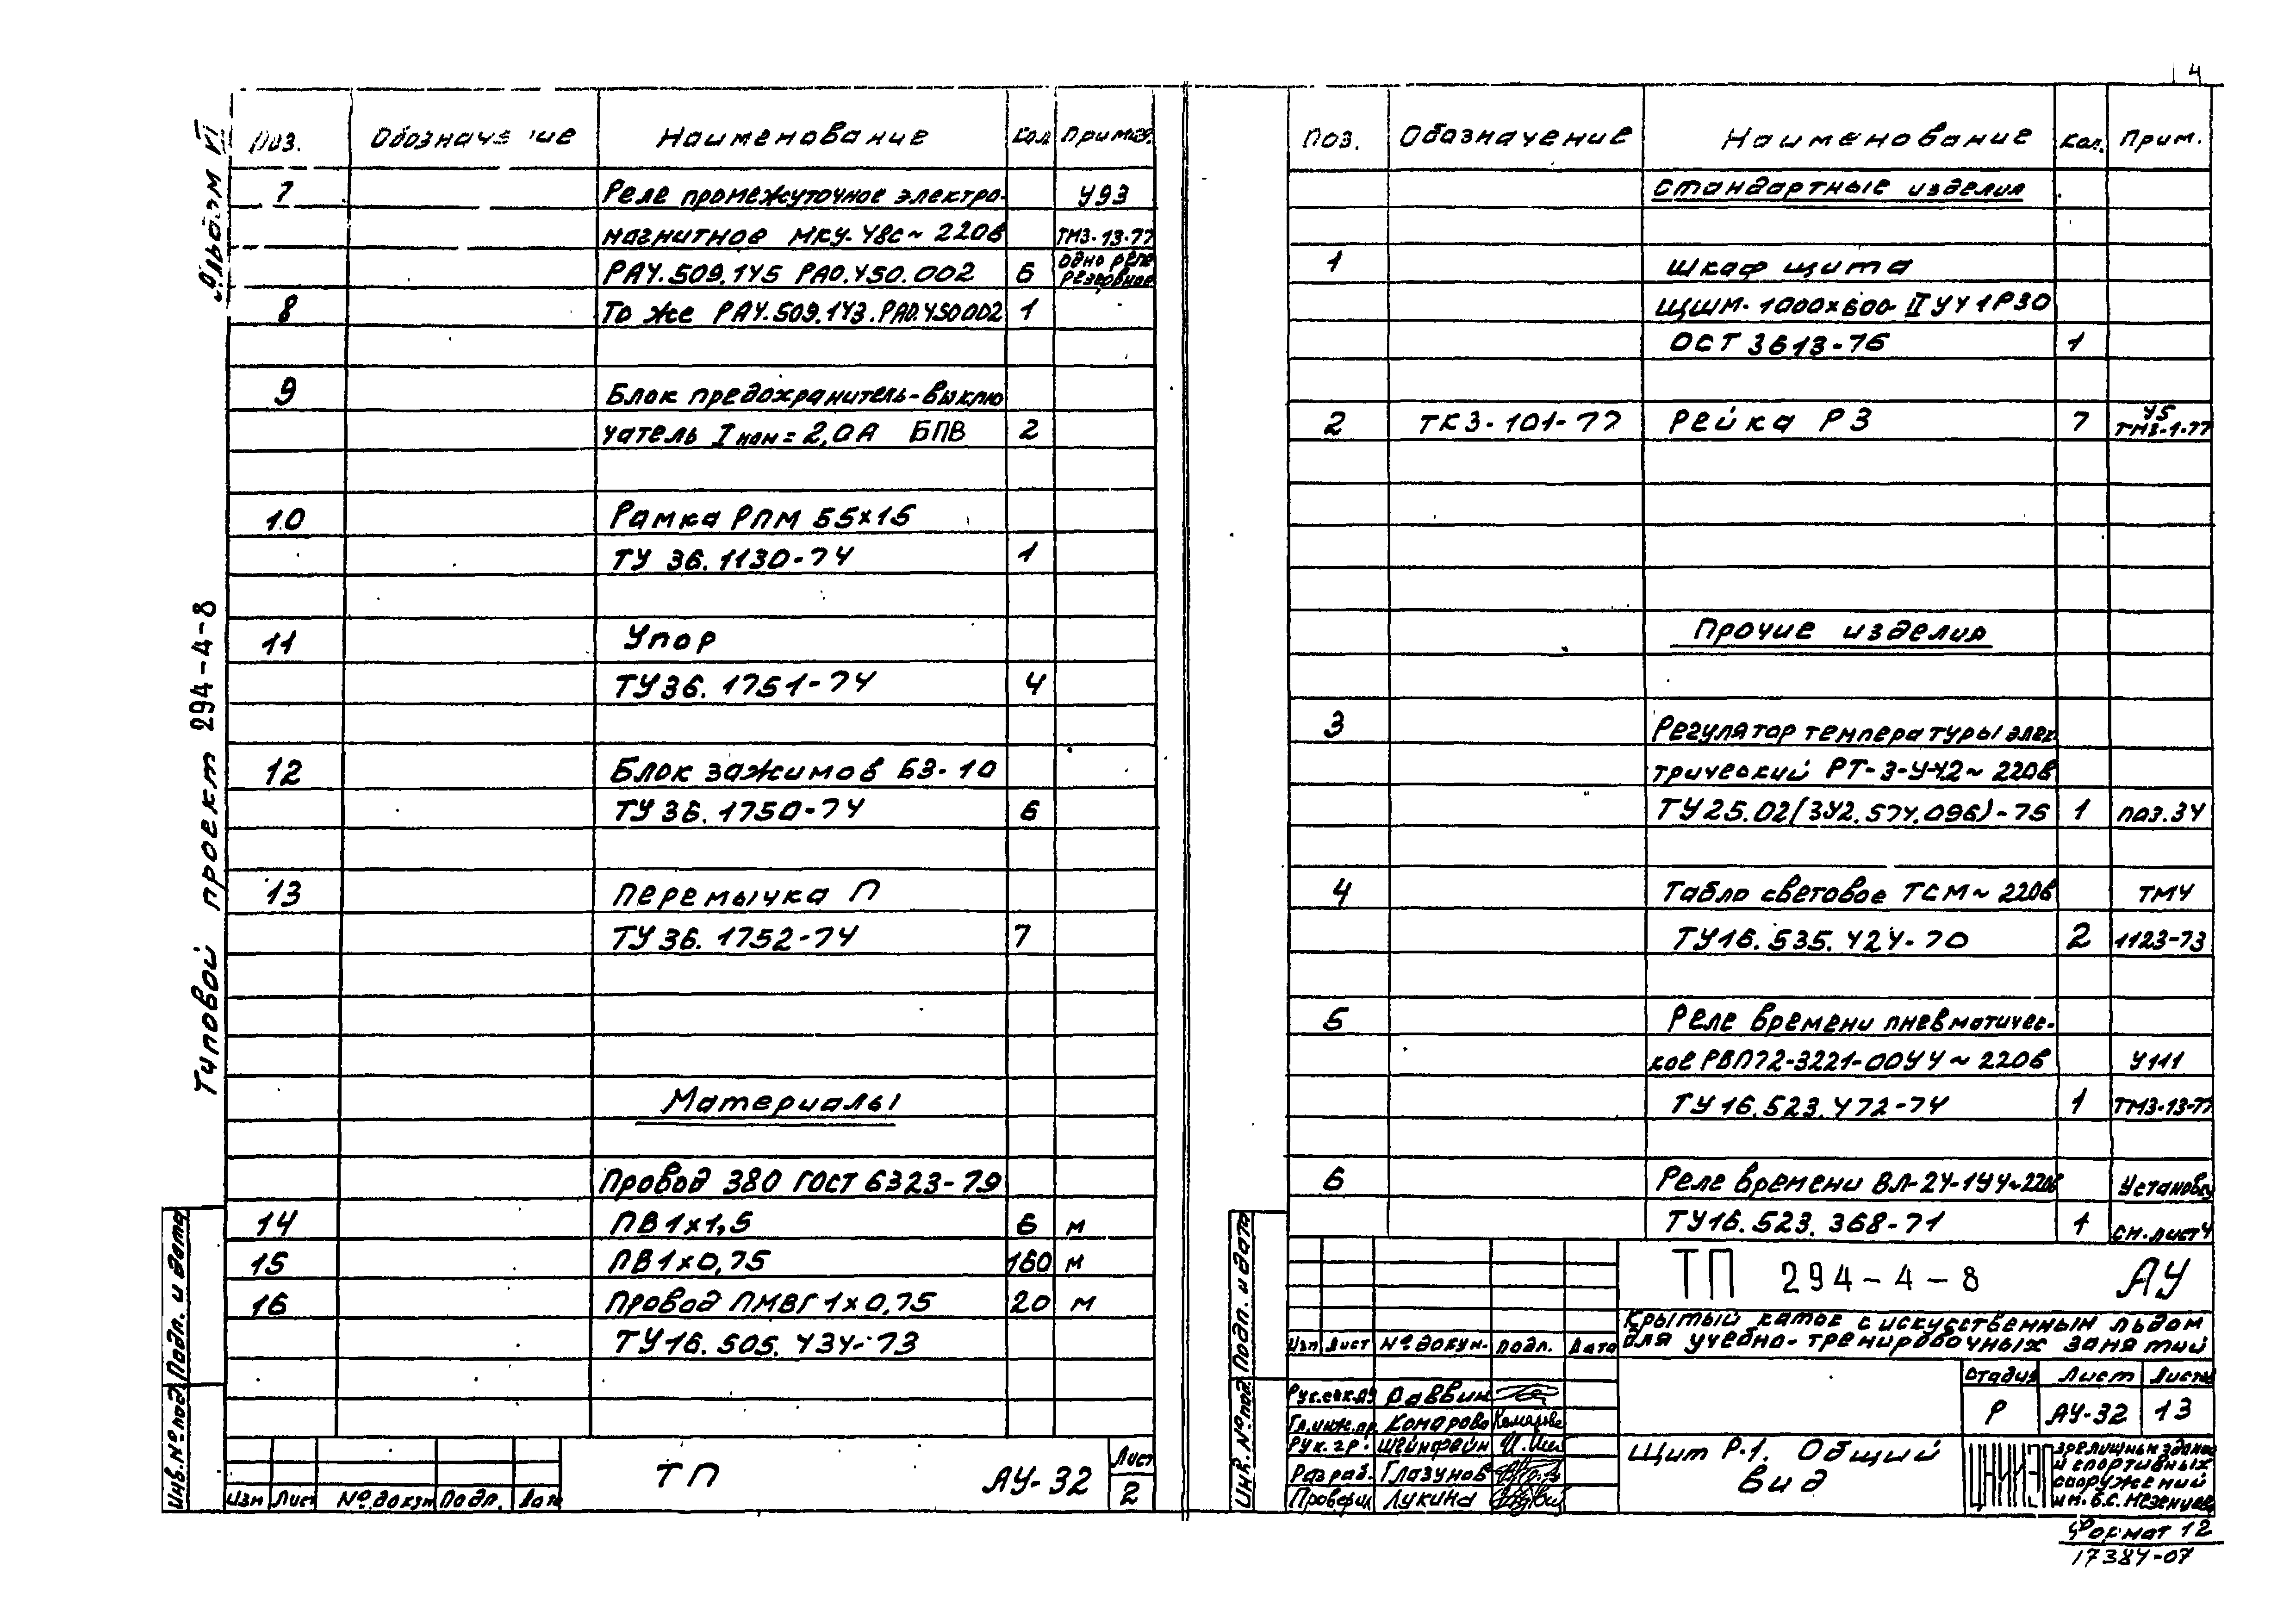 4
Альбом VI
Типовой проект 294-4-8
Поз. Обозначение Наименование Кол Примеч.
7 Реле промежуточное электро- У93
магнитное МКУ-48с~220в ТМ3-13-77
РА4.509.145 РА0.450.002 6 одно реле резервное
8 То же РА4.509.143.РА0.450002 1
9 Блок предохранитель-выклю
чатель Iном=2,0А БПВ 2
10 Рамка РПМ 55х15
ТУ 36.1130-74 1
11 Упор
ТУ36.1751-74 4
12 Блок зажимов БЗ-10
ТУ36.1750-74 6
13 Перемычка П
ТУ36.1752-74 7
Материалы
Провод 380 ГОСТ 6323-79
14 ПВ1х1,5 6 м
15 ПВ1х0,75 160 м
16 Провод ПМВГ 1х0,75 20 м
ТУ16.505.434-73
Изм Лист № докум Подп. Дата
ТП АУ-32
Лист
2
Инв.№ подл. Подп. и дата
Поз. Обозначение Наименование Кол. Прим.
Стандартные изделия
1 Шкаф щита
ЩШМ-1000х600-IIУ41Р30
ОСТ 3613-76 1
2 ТК3-101-77 Рейка Р3 7 У5 ТМ3-1-77
Прочие изделия
3 Регулятор температуры элек
трический РТ-3-У-42~220в
ТУ25.02(3У2.574.096)-75 1 поз.34
4 Табло световое ТСМ~220в ТМ4
ТУ16.535.424-70 2 1123-73
5 Реле времени пневматичес-
кое РВП72-3221-00У4~220в У111
ТУ16.523.472-74 1 ТМ3-13-77
6 Реле времени ВЛ-24-1У4~220в Установку
ТУ16.523.368-71 1 см.лист4
Инв.№ подл. Подп. и дата
ТП 294-4-8 АУ
Крытый каток с искусственным льдом
для учебно-тренировочных занятий
Изм Лист № докум. Подп. Дата
Рук.сек.АУ Раввин
Гл.инж.пр. Комарова Комарова
Рук.гр. Шейнфейн
Разраб. Глазунов
Проверил Лукина
Стадия Лист Листов
Р АУ-32 13
Щит Р-1. Общий
вид
зрелищных зданий
и спортивных
сооружений
им.Б.С.Мезенцева
Формат 12
17384-07